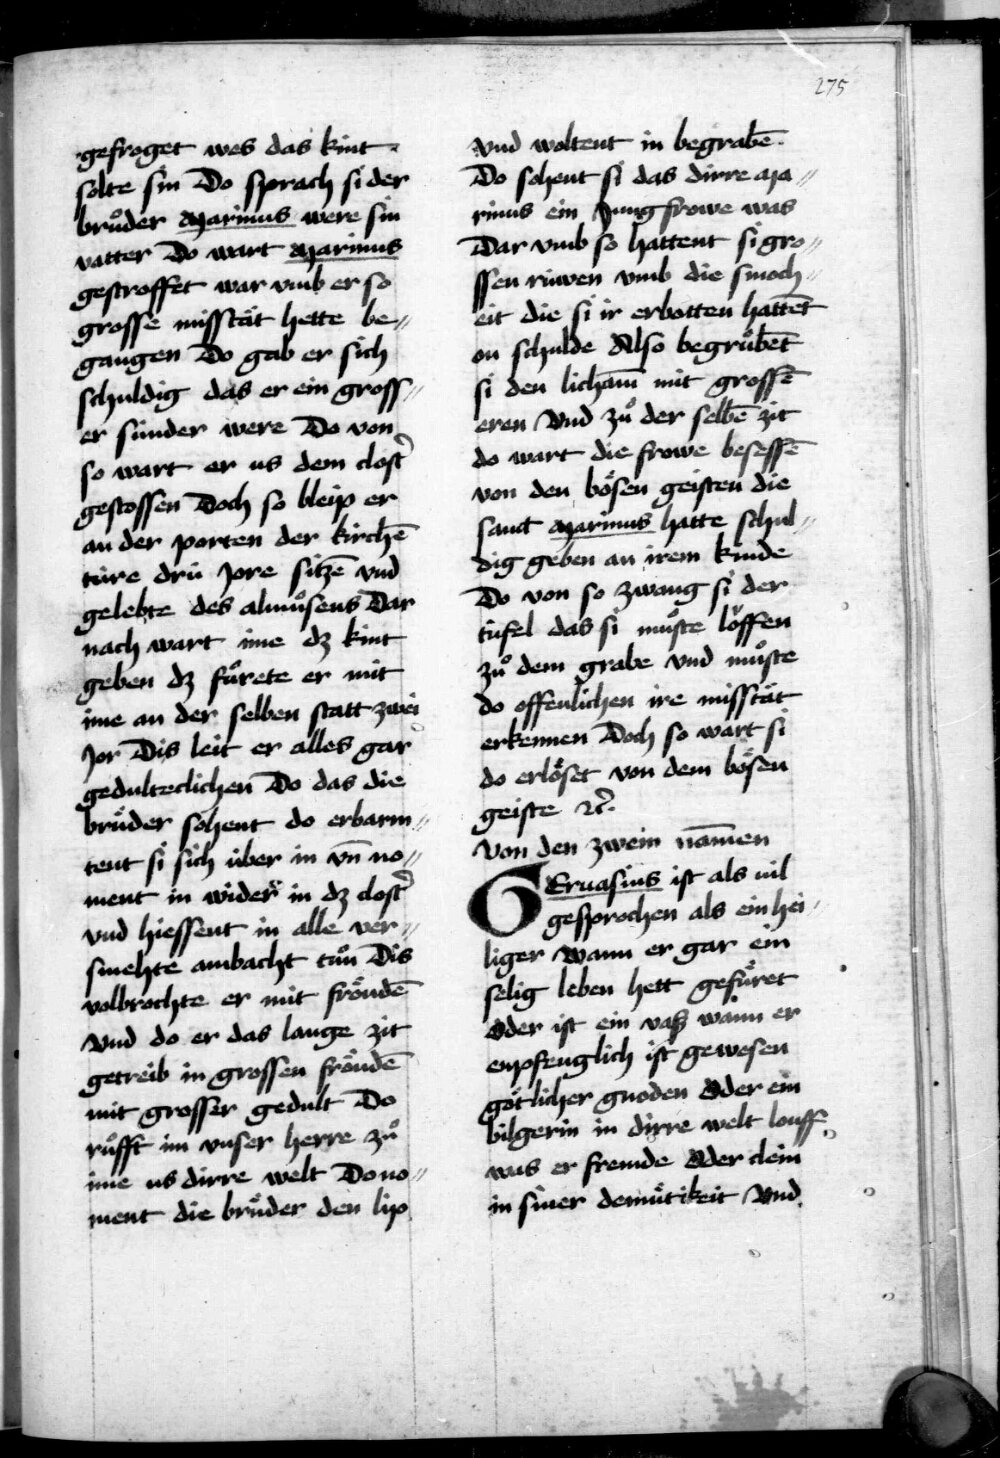 275
gefroget wes das kint
solte sin Do sprach si der
bruͦder Marinus were sin
vatter Do wart Marinus
gestroffet war vmb er so
grosse misstät hette be⸗
gangen Do gab er sich
schuldig das er ein gross⸗
er sünder were Do von
so wart er us dem clost̉
gestossen Doch so bleip er
an der porten der kirchē
türe drü Jore sitzē vnd
gelebte des almuͦsens Dar
nach wart ime dz kint
geben dz fuͦrete er mit
ime an der selben statt zwei
Jor Dis leit er alles gar
gedulteclichen Do das die
bruͤder sohent do erbarm⸗
tent si sich über in vn̄ no⸗
ment in wider̉ in dz clost̉
vnd hiessent in alle ver⸗
smehte ambacht tuͦn Dis
volbrochte er mit froͤudē
Vnd do er das lange zit
getreib in grossen froͤudē
mit grosser gedult Do
ruͦfft im vnser herre zuͦ
ime us dirre welt Do no⸗
ment die bruͤder den lip
Vnd woltent in begrabē.
Do sohent si das dirre Ma⸗
rinus ein Jungfrowe was
Dar vmb so hattent si gro⸗
ssen rüwen vmb die smoch⸗
eit die si ir erbotten hattēt
on schulde Also begruͦbēt
si den lichām mit grossē
eren Vnd zuͦ der selbē zit
do wart die frowe besessē
von den boͤsen geisten die
sanct Marinus hatte schul⸗
dig geben an irem kinde
Do von so zwang si der
tüfel das si muͦste loͤffen
zuͦ dem grabe vnd muͦste
do offenlichen ire misstät
erkennen Doch so wart si
do erloͤset von dem boͤsen
geiste ⁊c̉.
Von den zwein nāmen
GEruasius ist als uil
gesprochen als ein hei⸗
liger Wann er gar ein
selig leben hett gefuͤret
Oder ist ein vaß wann er
enpfenglich ist gewesen
götlicher gnoden Oder ein
bilgerin in dirre welt louff
was er fremde Oder clein
in siner demuͤtikeit Vnd